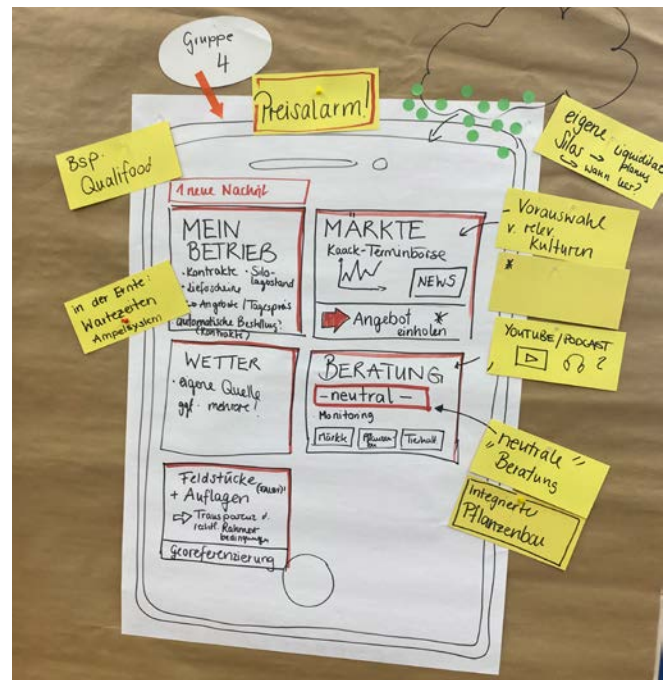 Gruppe
4
Preisalarm!
Bsp.
Qualifood
eigene
Silos →
Liquidität
planung
↳ wann leer?
1 neue Nachricht
MEIN
BETRIEB
· Kontrakte · Silo-
lagerstand
· Lieferscheine
→ Angebote / Tagespreis
automatische Bestellung?
(Kontrakte)
MÄRKTE
Kaack-Terminbörse
NEWS
Angebot *
einholen
Vorauswahl
v. relev.
Kulturen
*
in der Ernte:
Wartezeiten
Ampelsystem
YOUTUBE/PODCAST
?
WETTER
· eigene Quelle
ggf. mehrere!
BERATUNG
- neutral -
Monitoring
Märkte
Pflanzen
bau
Tierhalt.
"neutrale"
Beratung
Integrierter
Pflanzenbau
Feldstücke
+ Auflagen
⇨ Transparenz d.
rechtl. Rahmen-
bedingungen
Georeferenzierung